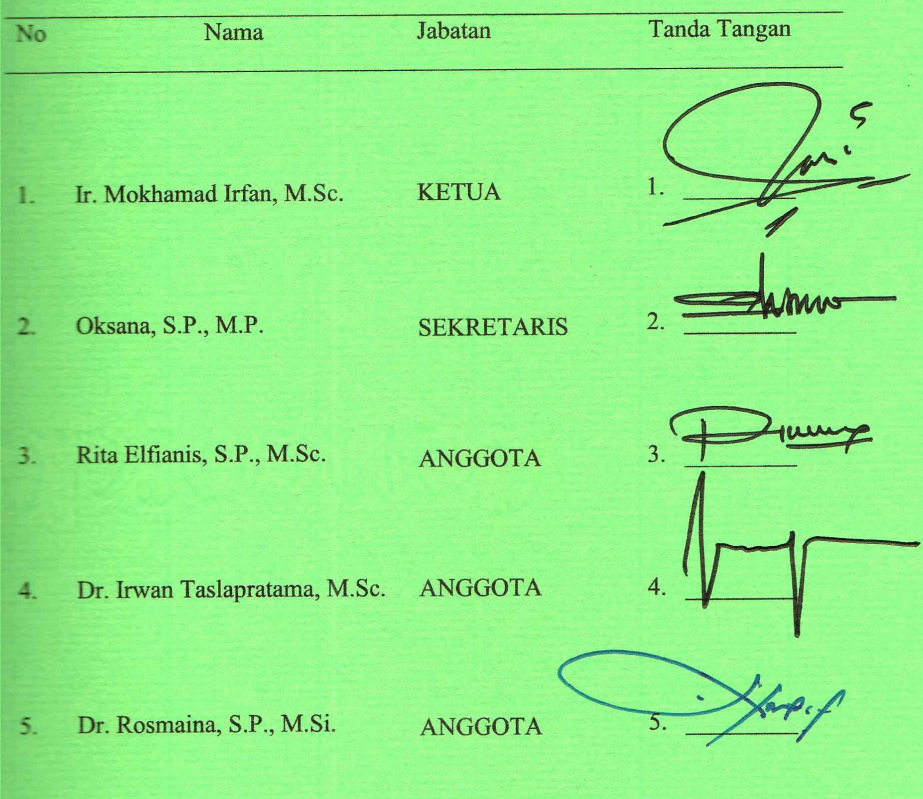 No Nama Jabatan Tanda Tangan
1. Ir. Mokhamad Irfan, M.Sc. KETUA 1.
2. Oksana, S.P., M.P. SEKRETARIS 2.
3. Rita Elfianis, S.P., M.Sc. ANGGOTA 3.
4. Dr. Irwan Taslapratama, M.Sc. ANGGOTA 4.
5. Dr. Rosmaina, S.P., M.Si. ANGGOTA 5.